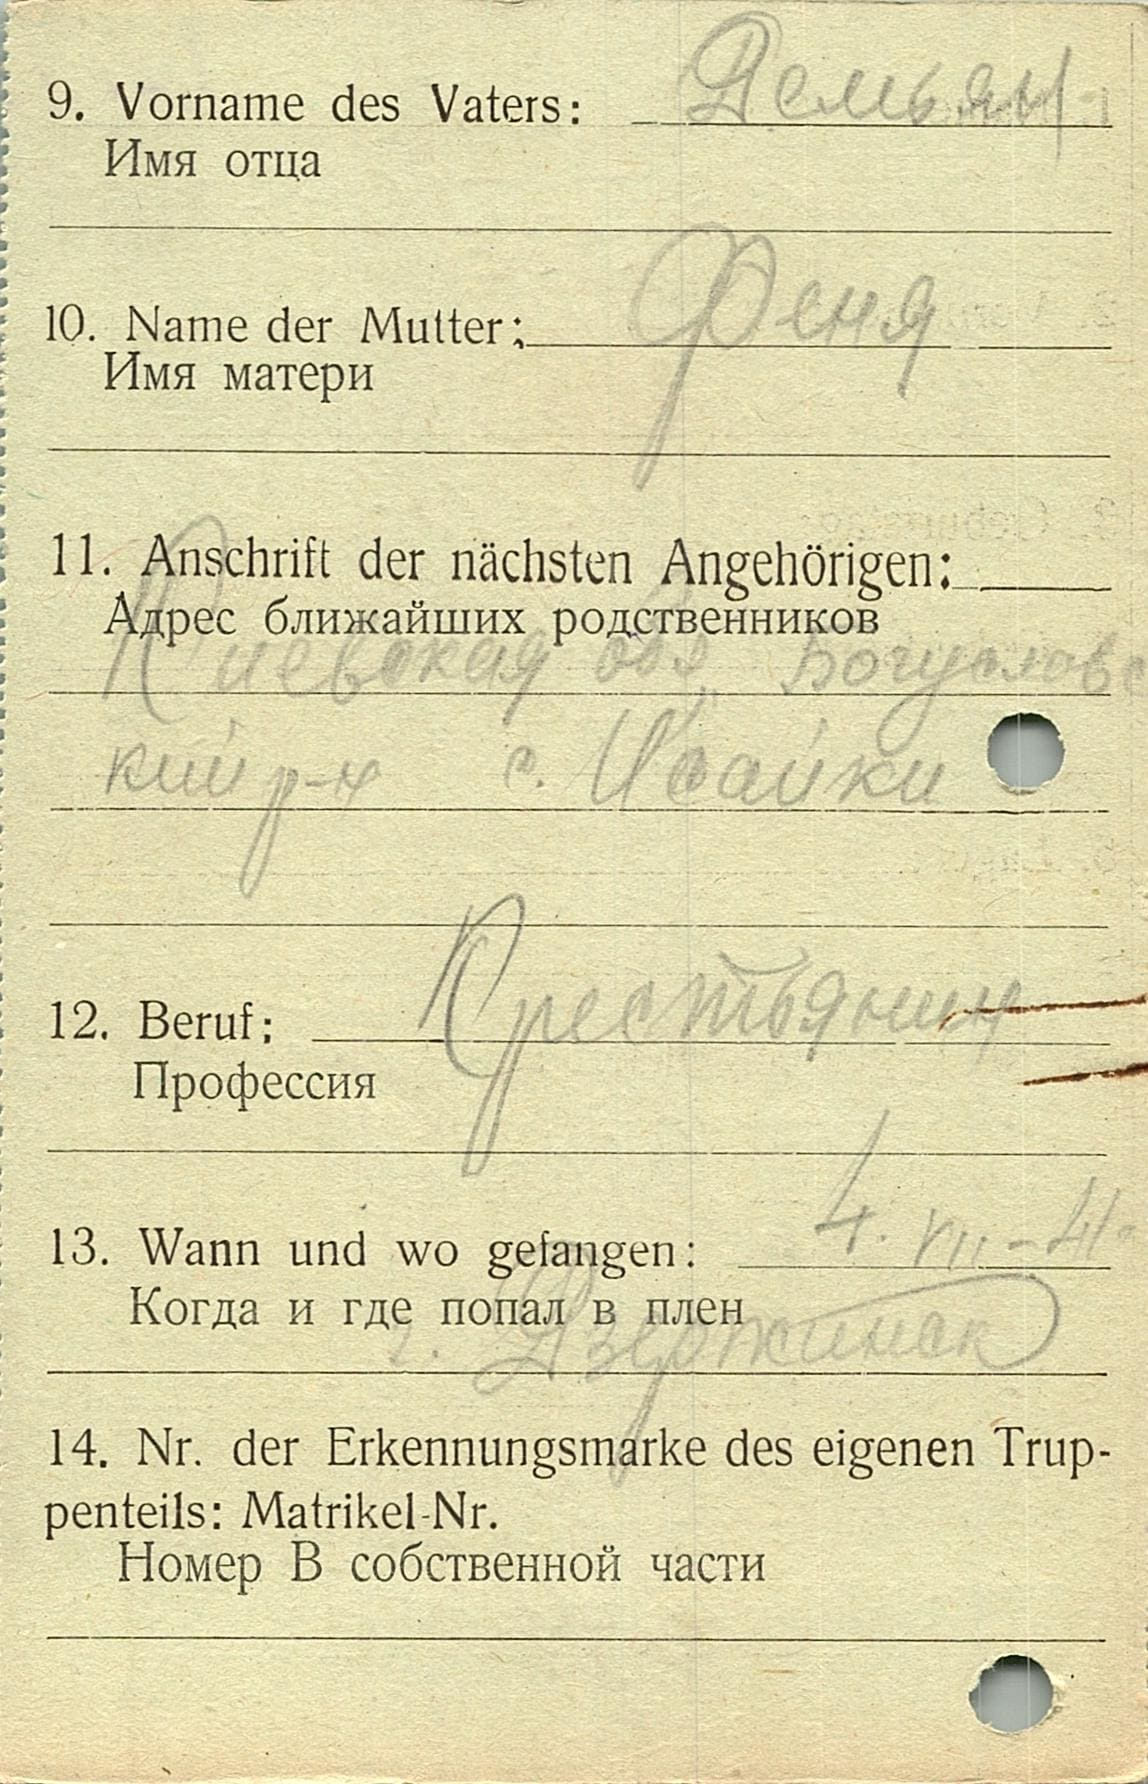 9. Vorname des Vaters: Демьян
Имя отца
10. Name der Mutter: Феня
Имя матери
11. Anschrift der nächsten Angehörigen:
Адрес ближайших родственников
Киевская обл, Богуславс
кий р-н с. Исайки
12. Beruf: Крестьянин
Профессия
13. Wann und wo gefangen: 4. VII-41
Когда и где попал в плен
г. Дзержинск
14. Nr. der Erkennungsmarke des eigenen Trup-
penteils: Matrikel-Nr.
Номер В собственной части